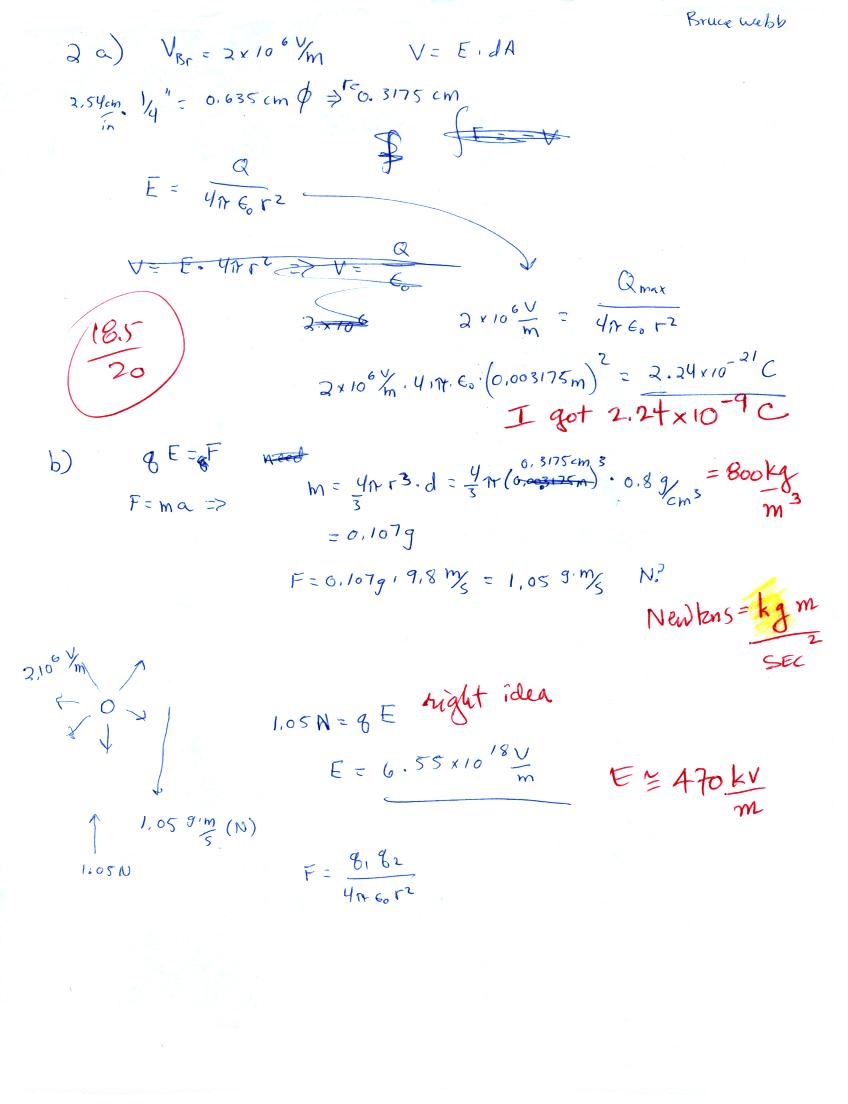 Bruce Webb
2 a) V_Br = 2 x 10^6 V/m V = E · dA
2.54 cm/in · 1/4" = 0.635 cm ϕ ⇒ r= 0.3175 cm
∫ E = V
E = Q / 4π ε₀ r²
V = E · 4π r² ⇒ V = Q / ε₀
2 x 10^6
2 x 10^6 V/m = Q max / 4π ε₀ r²
18.5 / 20
2 x 10^6 V/m · 4 · π · ε₀ · (0,003175m)² = 2.24 x 10^-21 C
I got 2.24 x 10^-9 C
b) q E = F need
F = ma ⇒
m = 4/3 π r³ · d = 4/3 π (0.3175cm)³ · 0.8 g/cm³ = 800 kg/m³
0,003175m
= 0,107g
F = 0,107g · 9,8 m/s = 1,05 g·m/s N?
Newtons = kg m / SEC²
2,10^6 V/m
1.05 N = q E right idea
E = 6.55 x 10^18 V/m
E ≅ 470 kV/m
1,05 g·m/s (N)
1.05 N
F = q₁ q₂ / 4π ε₀ r²